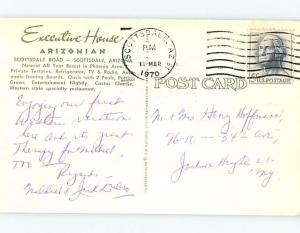 Executive House
ARIZONIAN
SCOTTSDALE ROAD — SCOTTSDALE, ARIZONA
Newest All Year Resort in Phoenix Area
Private Terraces, Refrigerator, TV & Radio,
matic Ironing Boards. Oasis with 2 Pools, Putting
Green. Entertainment Nightly. Cactus Charlie,
Western style specialty restaurant.
SCOTTSDALE, ARIZ
PM
11 MAR
1970
U.S. POSTAGE
POST CARD
Enjoying our first
Western vacation
here and its great
Therapy for Michel
too —
Regards
Mildred & Jack
Mr. & Mrs Henry Hoffman
76-10 - 34 - Ave
Jackson Heights L.I.
NY